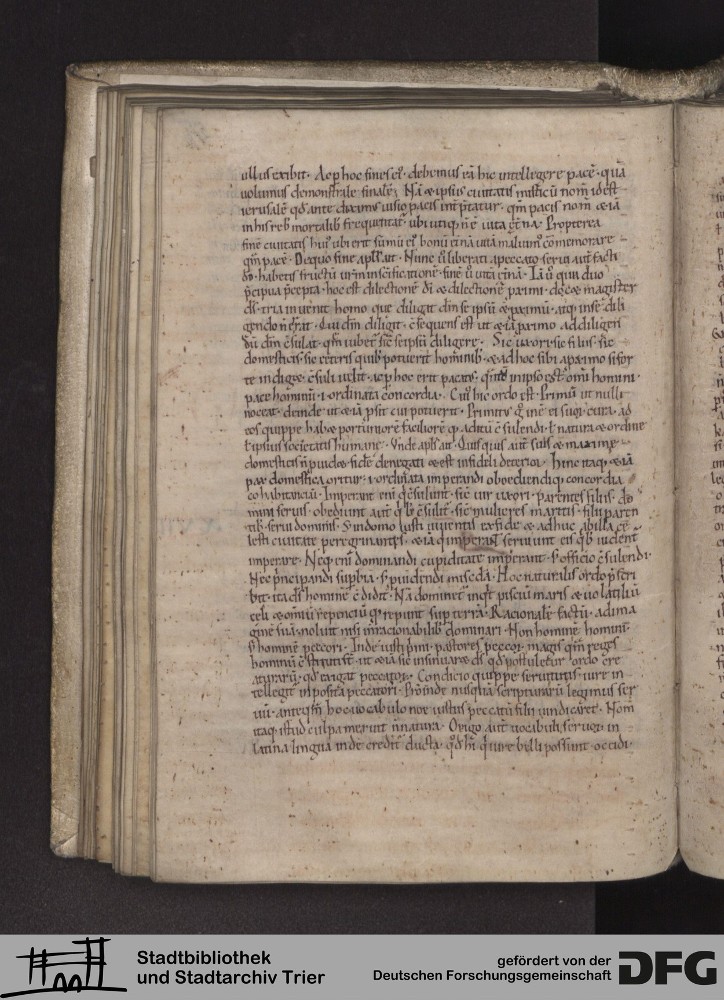 ullus exibit. Ac p hoc fines ei⁹ debemus ea͂ hic intellegere pace͂. qua͂
volumus demonstrare finale͂. Na͂ & ipsius ciuitatis misticu͂ nom͂ id est
ierusale͂ qd͂ ante diximus uisio pacis int͂p̃tatur. qm͂ pacis nom͂ & ia͂
in his reb; mortalib; frequentat͂. ubi utiq; n͂ e͂ uita et͂na. Propterea
fine͂ ciuitatis hui⁹ ubi erit su͂mu͂ ei⁹ bonu͂ et͂na͂ uita͂ maluim⁹ co͂memorare
qm͂ pace͂. De quo fine apl͂s ait. Nunc u͂ liberati a peccato serui aut͂ facti
do͂. habetis fructu͂ ur͂m in sc͂ificatione͂. fine͂ u͂ uita͂ et͂na͂. Ia͂ u͂ quia duo
p͂cipua p͂cepta. hoc est dilectione͂ di͂ & dilectione͂ p͂ximi. doc& magister
ds͂. tria inuenit homo que diligit dm͂ se ipsu͂ & p͂ximu͂. atq; in se͂ dili
gendo n͂ errat. qui dm͂ diligit. c͂sequens est ut & ia͂ p͂ximo ad diligen
du͂ dm͂ c͂sulat. qm͂ iubet͂ sic͂ se ipsu͂ diligere. Sic uxori. sic filiis. sic
domesticis. sic ceteris quib; potuerit hom͂inib;. & ad hoc sibi a p͂ximo si for
te indig&. c͂suli uelit. ac p hoc erit pacat⁹. qntu͂ in ipso est om͂i homini.
pace hominu͂. i. ordinata concordia. Cui⁹ hic ordo est. Primu͂ ut nulli
noceat. deinde ut & ia͂ p͂sit cui potuerit. Primitus g͂ ine͂ ei suor͂ cura. ad
eos quippe hab& oportuniore͂ faciliore͂q; aditu͂ c͂sulendi. ł natura & ordine
ł ipsius societatis humane. Vnde apl͂s ait. Quisquis aut͂ suis & maxime
domesticis n͂ puid&. fide͂ denegat & est infideli deterior. Hinc itaq; & ia͂
pax domestica oritur. i. ordinata imperandi oboediendiq; concordia
cohabitantiu͂. Imperant eni͂ q͂ c͂sulunt. sic͂ uir uxori. parentes filiis. do
mini seruis. obediunt aut͂ q͂b; c͂sulit͂. sic͂ mulieres maritis. filii paren
tib;. serui dominis. S; in domo iusti uiuentis ex fide & adhuc ab illa ce
lesti ciuitate peregrinantis. & ia͂ q͂ imperant seruiunt eis q͂b; uident͂
imperare. Neq; eni͂ dominandi cupiditate imperant. s; officio c͂sulendi.
Nec p͂ncipandi sup͂bia. s; puidendi misc͂dia. Hoc naturalis ordo p͂scri
bit. ita ds͂ homine͂ c͂didit. Na͂ dominet͂ inqt͂ pisciu͂ maris & uolatiliu͂
celi & omniu͂ repentiu͂ q͂ repunt sup terra͂. Racionale͂ factu͂ ad ima
gine͂ sua͂. noluit nisi in racionabilib; dominari. Non homine͂ homini.
s; homine͂ peccori. Inde iusti p͂mi. pastores peccor͂. magis qm͂ reges
hominu͂ c͂stituti st͂. ut & ia͂ sic insinuar& ds͂ qd͂ postulet͂ ordo cre
aturaru͂. qd͂ exigat peccator͂. Condicio quippe seruitutis iure in
tellegit͂ inposita peccatori. Proinde nusqua͂ scripturaru͂ legimus ser
uu͂. anteqm͂ hoc uocabulo noe iustus peccatu͂ filii uindicaret. Nom͂
itaq; istud culpa meruit n͂ natura. Origo aut͂ uocabuli seruor͂ in
latina lingua inde credit͂ ducta. qd͂ hi q͂ iure belli possunt occidi.
Stadtbibliothek
und Stadtarchiv Trier
gefördert von der
Deutschen Forschungsgemeinschaft
DFG